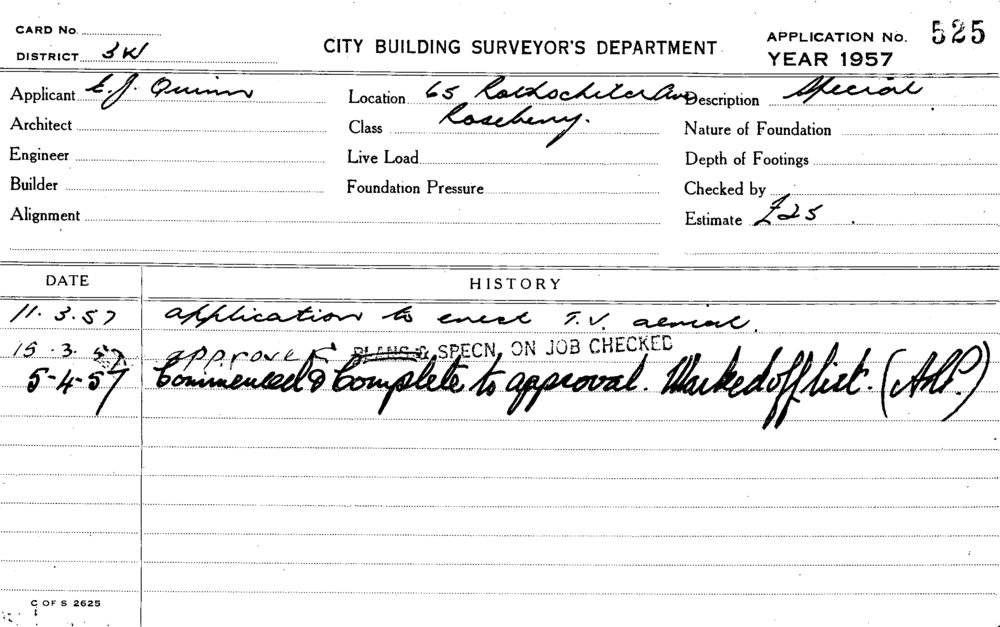 CARD No.
DISTRICT 3W
CITY BUILDING SURVEYOR'S DEPARTMENT
APPLICATION No. 525
YEAR 1957
Applicant E. J. Quinn
Location 65 Rothschild Ave
Description Special
Architect
Class Rosebery.
Nature of Foundation
Engineer
Live Load
Depth of Footings
Builder
Foundation Pressure
Checked by
Alignment
Estimate £25.
DATE HISTORY
11.3.57 application to erect T.V. aerial.
15.3.57 approved PLANS & SPECN. ON JOB CHECKED
5-4-57 Commenced & Complete to approval. Marked off list.
C OF S 2625